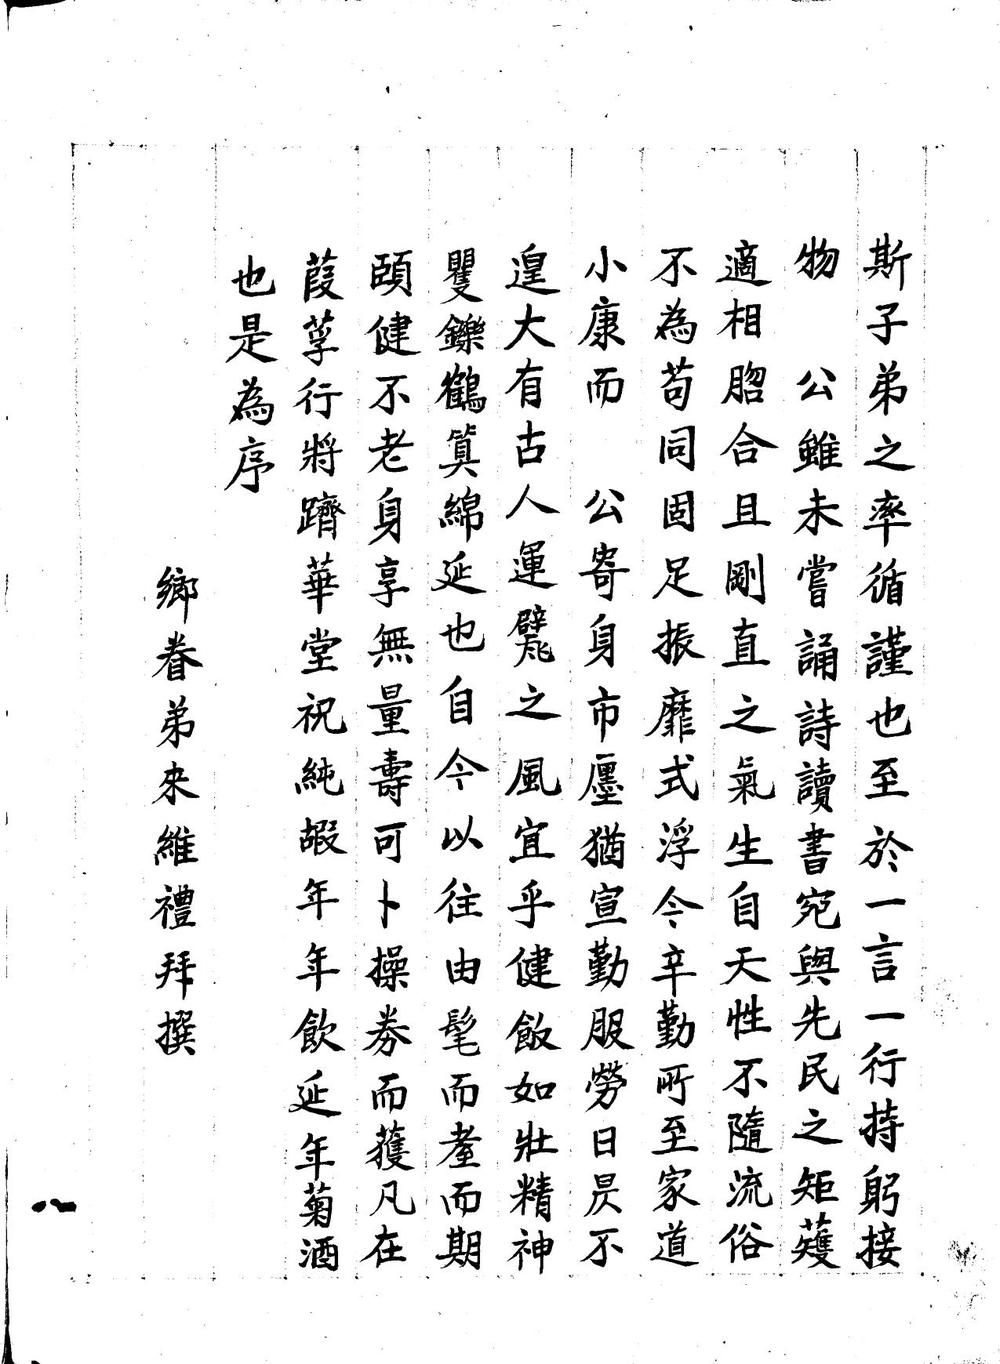 斯子弟之率循謹也至於一言一行持躬接
物　公雖未嘗誦詩讀書宛與先民之矩蒦
適相脗合且剛直之氣生自天性不隨流俗
不為苟同固足振靡式浮今辛勤所至家道
小康而　公寄身市廛猶宣勤服勞日昃不
遑大有古人運甓之風宜乎健飯如壯精神
矍鑠鶴算綿延也自今以往由髦而耋而期
頤健不老身享無量壽可卜操券而獲凡在
葭莩行將躋華堂祝純嘏年年飲延年菊酒
也是為序
鄉眷弟來維禮拜撰